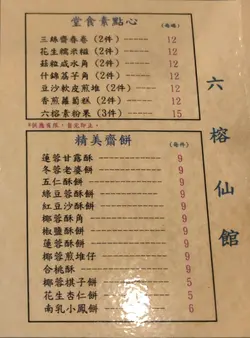 堂食素點心 (每碟)
三絲齋春卷（2件）------ 12
花生糯米糍（2件）------ 12
菇粒咸水角（2件）------ 12
什錦荔芋角（2件）------ 12
豆沙軟皮煎堆（2件）---- 12
香煎蘿蔔糕（2件）------ 12
六榕素粉果（3件）------ 15
*供應有限，售完即止。
精美齋餅 (每件)
蓮蓉甘露酥 ------ 9
冬蓉老婆餅 ------ 9
五仁酥餅 ------ 9
綠豆蓉酥餅 ------ 9
紅豆沙酥餅 ------ 9
椰蓉酥角 ------ 9
椒鹽酥餅 ------ 9
蓮蓉酥餅 ------ 9
椰蓉煎堆仔 ------ 9
合桃酥 ------ 9
椰蓉棋子餅 ------ 5
花生杏仁餅 ------ 5
南乳小鳳餅 ------ 6
六榕仙館